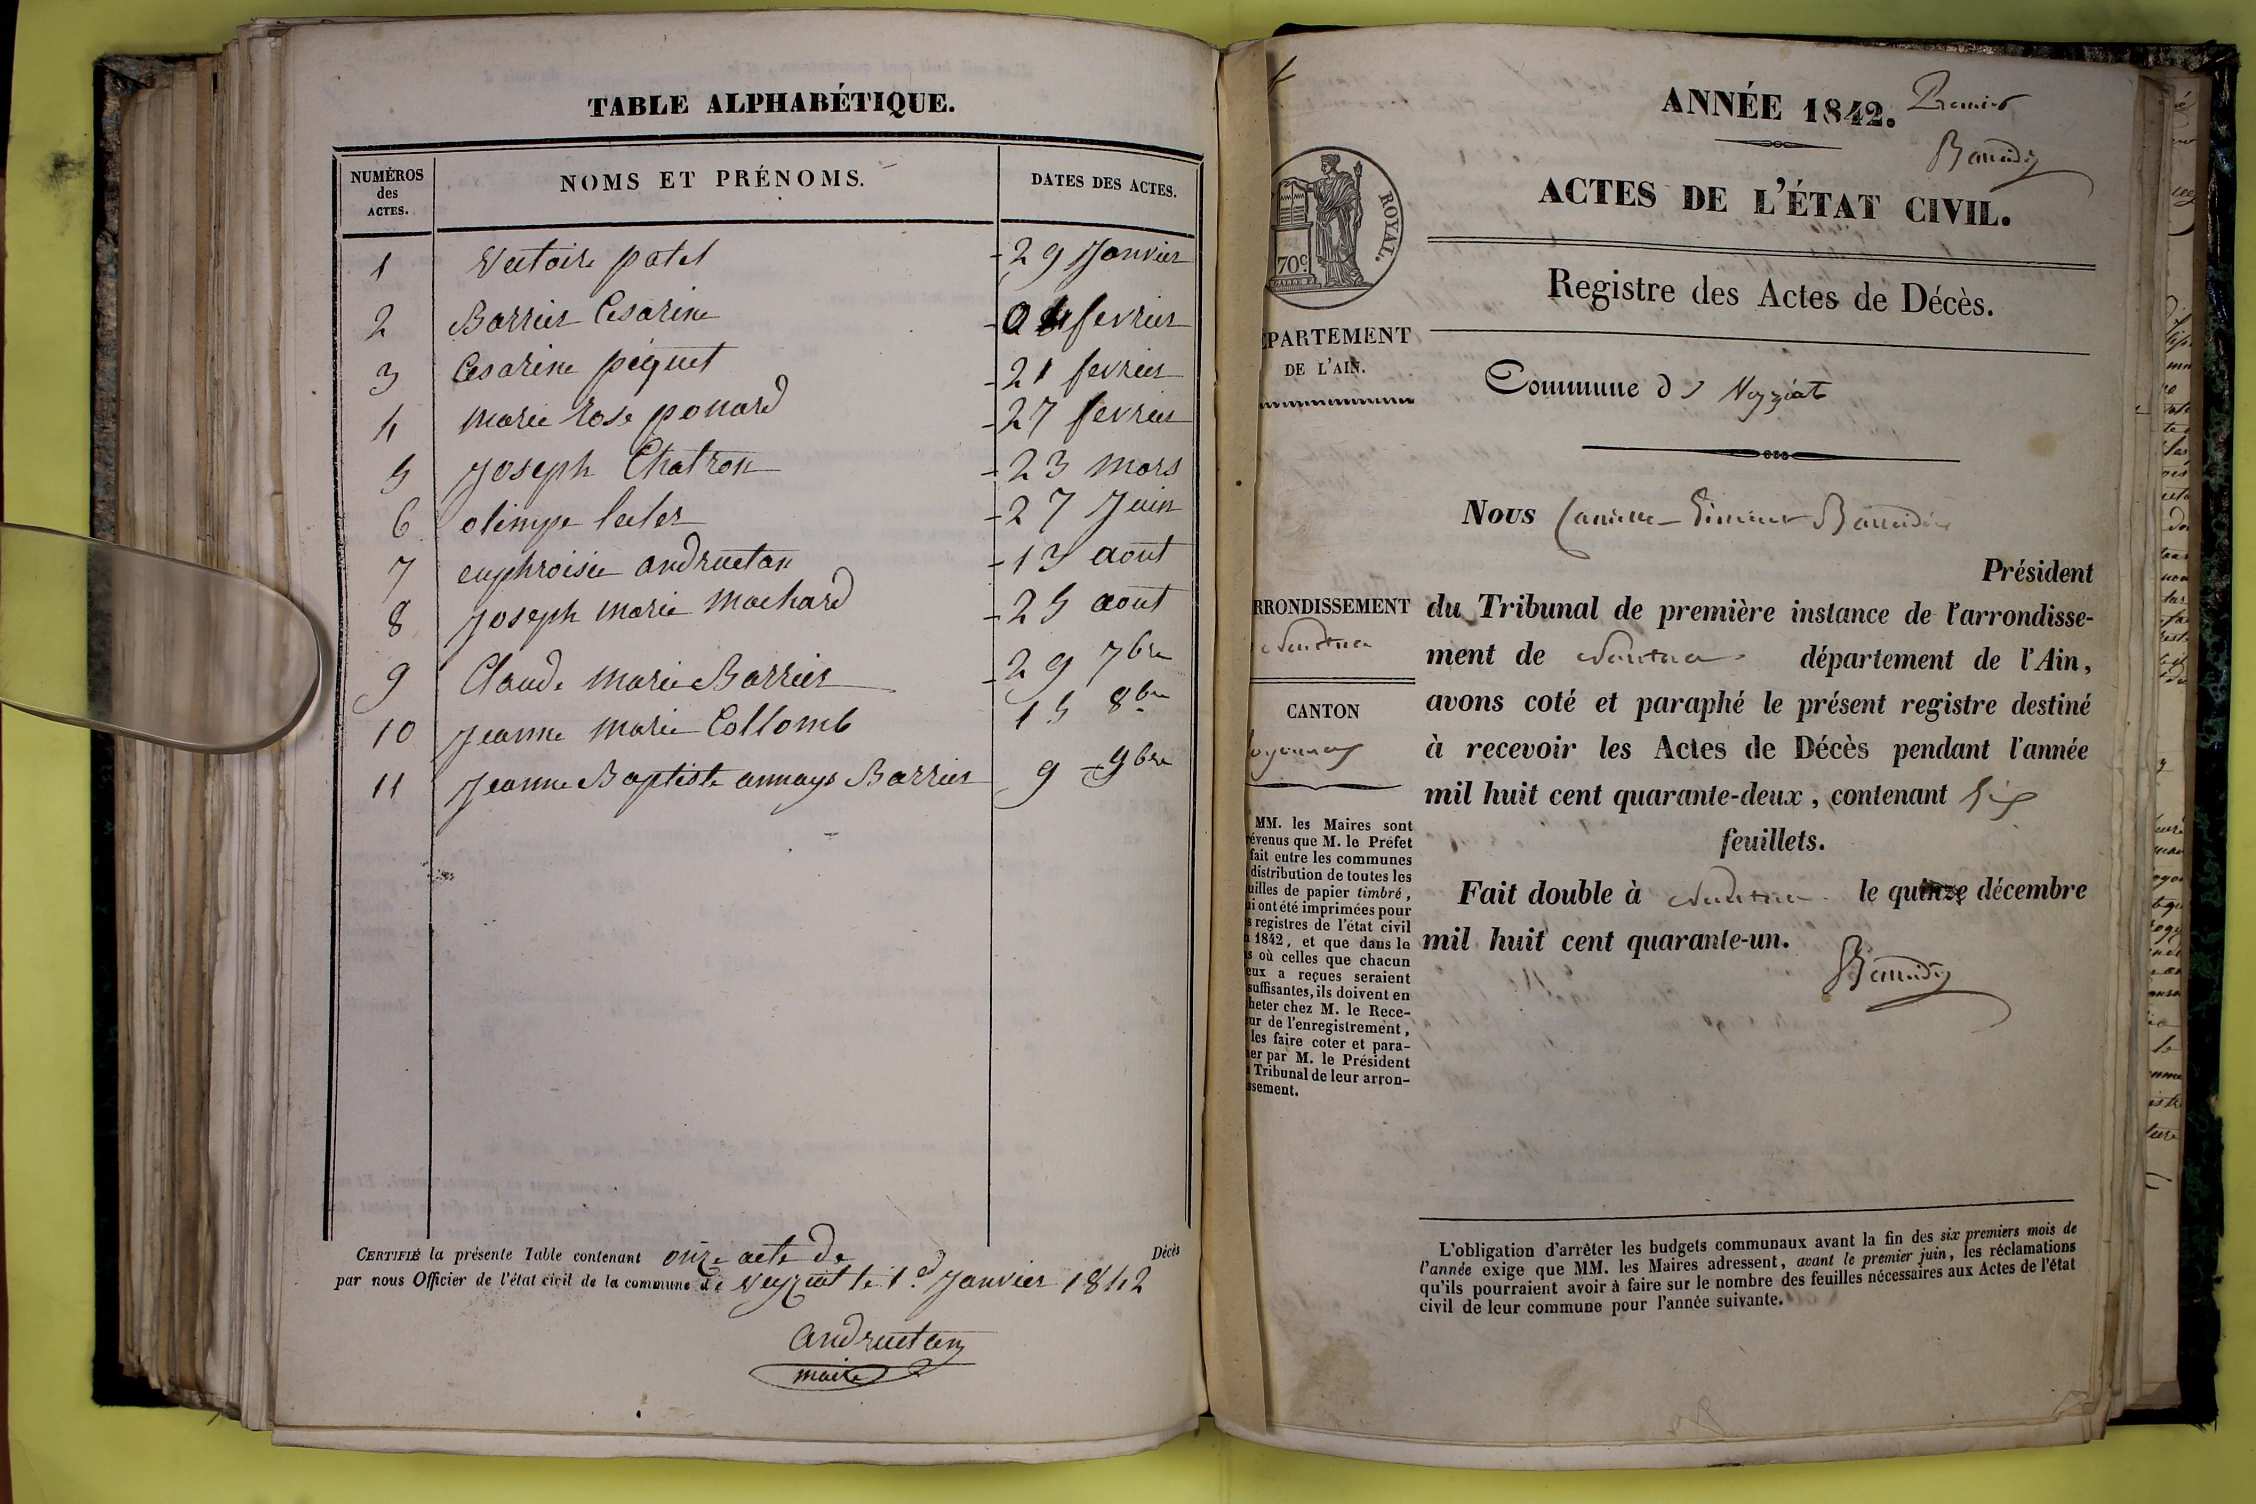 TABLE ALPHABÉTIQUE.
NUMÉROS des ACTES. NOMS ET PRÉNOMS. DATES DES ACTES.
1 Victoire patel - 29 Janvier
2 Barrier Cesarine - fevrier
3 Cesarine péquet - 21 fevrier
4 marie rose ponard - 27 fevrier
5 Joseph Chatron - 23 mars
6 olimpe - 27 Juin
7 euphroisie andruetan - 13 aout
8 Joseph marie machard - 25 aout
9 Claude marie Barrier - 29 7bre
10 Jeanne marie Collomb 15 8bre
11 Jeanne Baptiste annays Barrier 9 - 9bre
CERTIFIÉ la présente Table contenant onze acte de Décès
par nous Officier de l'état civil de la commune de Veyziat le 1er Janvier 1842
andruetan
maire
ANNÉE 1842. Premier
ACTES DE L'ÉTAT CIVIL.
Registre des Actes de Décès.
Commune de Veyziat
Nous
Président
du Tribunal de première instance de l'arrondisse-
ment de Nantua département de l'Ain,
avons coté et paraphé le présent registre destiné
à recevoir les Actes de Décès pendant l'année
mil huit cent quarante-deux, contenant Six
feuillets.
Fait double à Nantua le quinze décembre
mil huit cent quarante-un.
L'obligation d'arrêter les budgets communaux avant la fin des six premiers mois de
l'année exige que MM. les Maires adressent, avant le premier juin, les réclamations
qu'ils pourraient avoir à faire sur le nombre des feuilles nécessaires aux Actes de l'état
civil de leur commune pour l'année suivante.
ROYAL.
70c
ÉPARTEMENT
DE L'AIN.
RRONDISSEMENT
Nantua
CANTON
oyonnax
MM. les Maires sont
révenus que M. le Préfet
fait entre les communes
distribution de toutes les
uilles de papier timbré,
ui ont été imprimées pour
s registres de l'état civil
1842, et que dans le
s où celles que chacun
eux a reçues seraient
suffisantes, ils doivent en
heter chez M. le Rece-
ur de l'enregistrement,
les faire coter et para-
her par M. le Président
Tribunal de leur arron-
ssement.